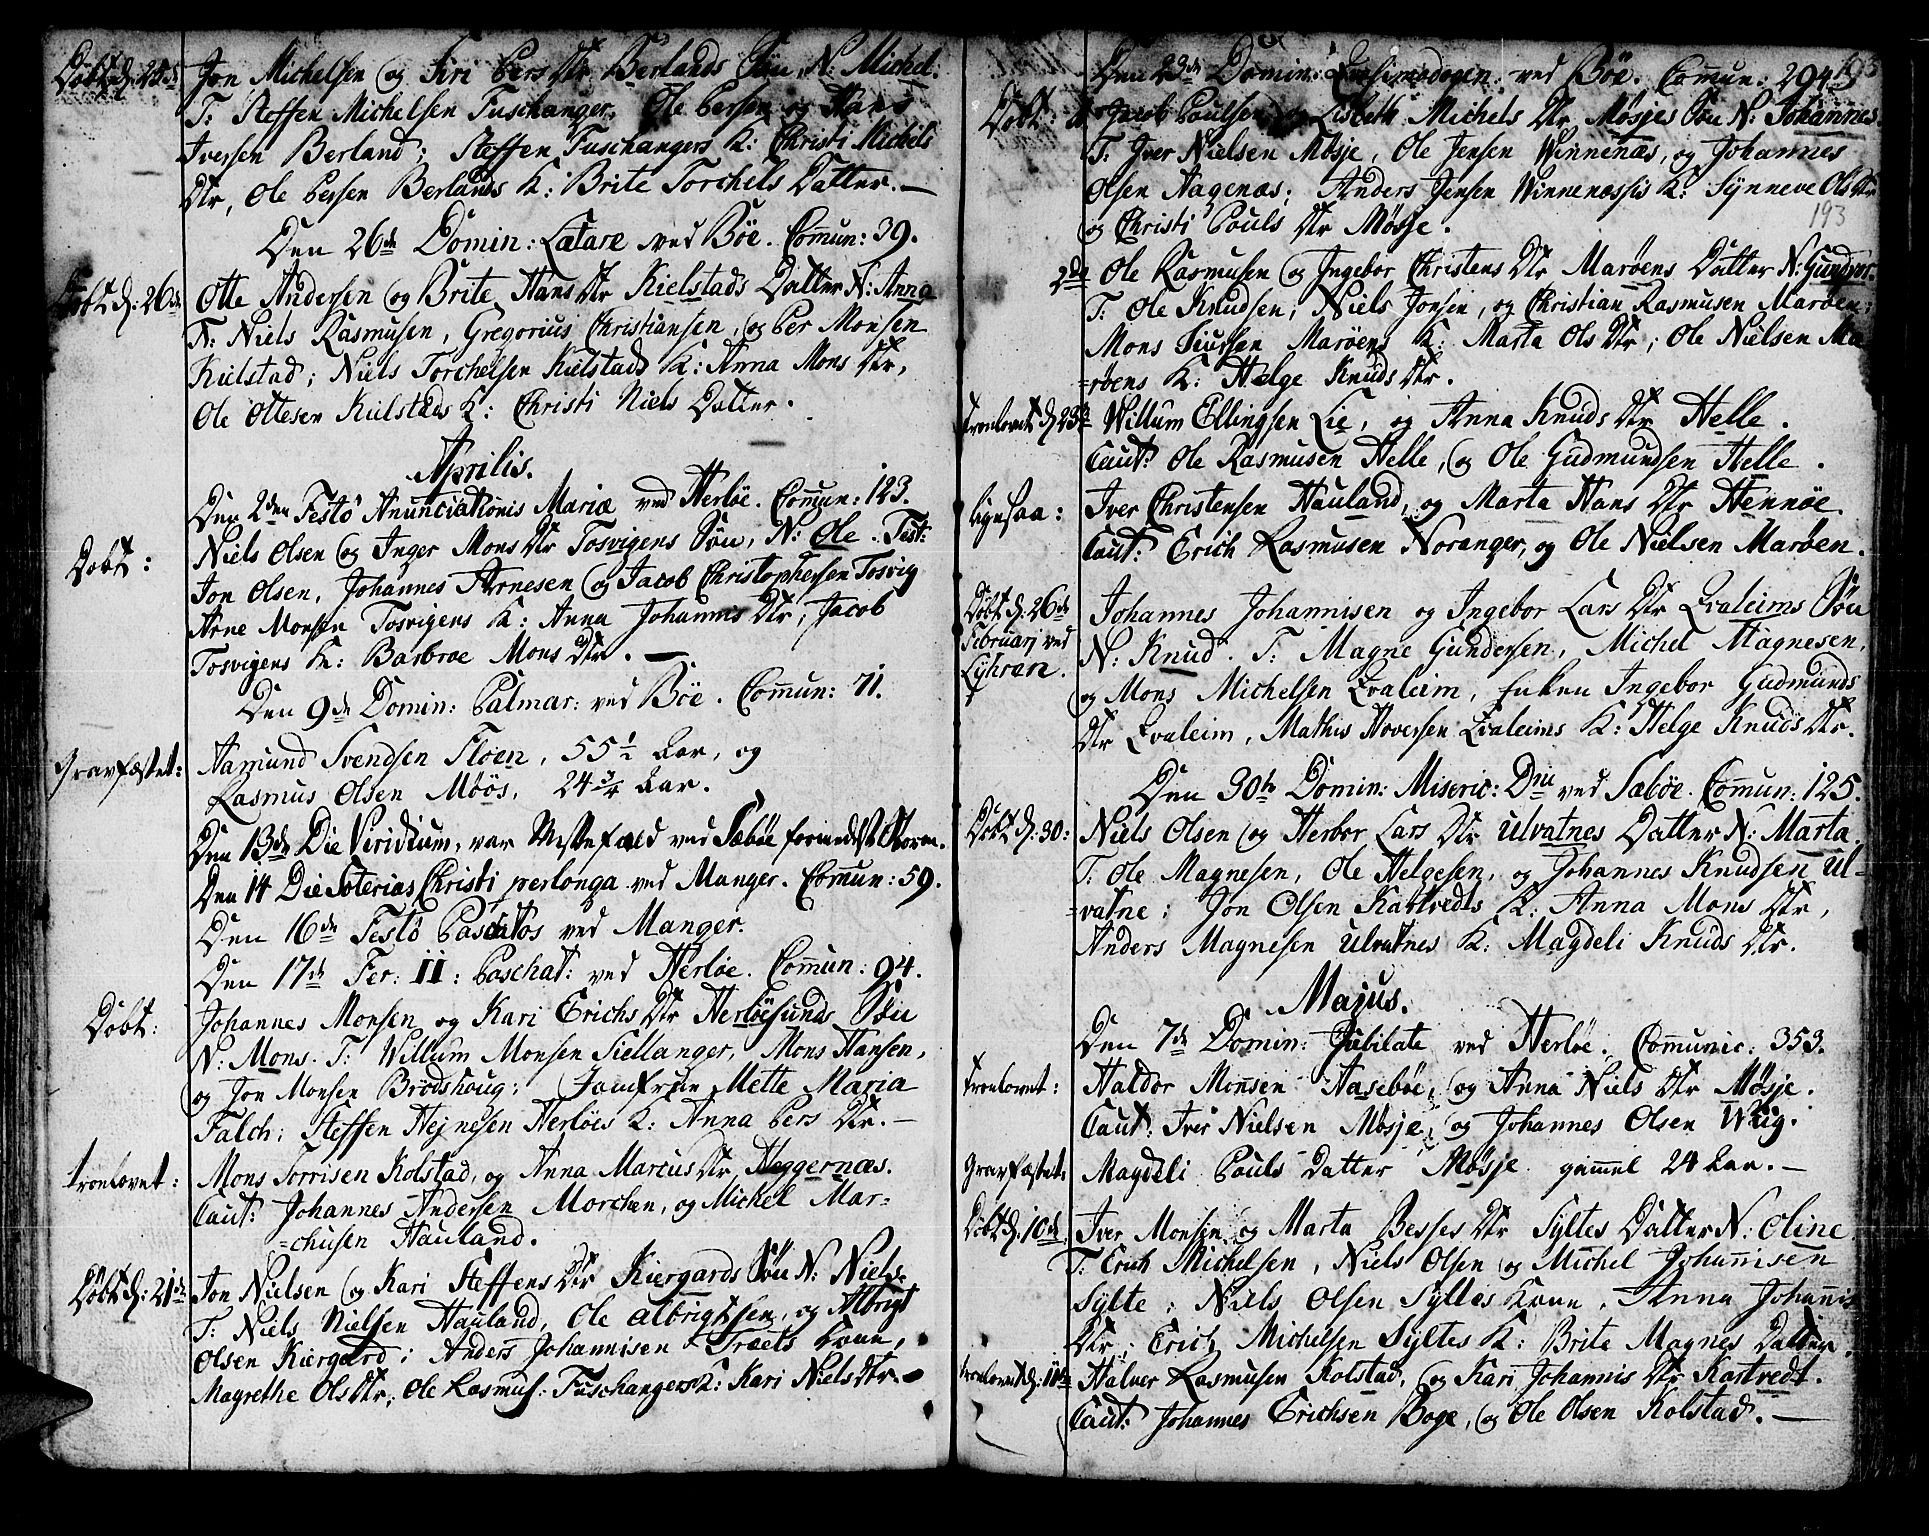 Døbt d: 25de Jon Michelsen og Siri Pers Dtr Berlands Søn, N: Michel.
T: Steffen Michelsen Fuschanger, Ole Persen og Hans
Iversen Berland; Steffen Fuschangers K: Christi Michels
Dtr, Ole Persen Berlands K: Brite Torchels Datter. —
Den 26de Domin: Lætare ved Bøe. Com̄un: 39.
Døbt d: 26de Otte Andersen og Brite Hans Dtr Kielstads Datter N: Anna
T: Niels Rasmusen, Gregorius Christiansen, og Per Monsen
Kielstad; Niels Torchelsen Kielstads K: Anna Mons Dtr,
Ole Ottesen Kielstads K: Christi Niels Datter.
Aprilis.
Den 2den Festo Anunciationis Mariæ ved Herløe. Com̄un: 123.
Døbt: Niels Olsen og Inger Mons Dtr Tosvigens Søn, N: Ole. Test:
Jon Olsen, Johannes Arnesen og Jacob Christophersen Tosvig
Arne Monsen Tosvigens K: Anna Johannis Dtr, Jacob
Tosvigens K: Barbroe Mons Dtr. —
Den 9de Domin: Palmar: ved Bøe. Com̄un: 71.
Gravfæstet: Aamund Svendsen Fløen, 55 1/2 Aar, og
Rasmus Olsen Møøs, 24 3/4 Aar.
Den 13de Die Viridium, var Messefald ved Sæbøe formedelst Storm.
Den 14 Die Soterias Christi perlonga ved Manger. Com̄un: 59.
Den 16de Festo Paschatos ved Manger.
Den 17de Fer: II: Paschat: ved Herløe. Com̄un: 94.
Døbt: Johannes Monsen og Kari Erichs Dtr Herløesunds Søn
N: Mons. T: Willum Monsen Siellanger, Mons Hansen,
og Jon Monsen Brodshoug; Jomfrue Mette Maria
Falch; Steffen Hejnesen Herløes K: Anna Pers Dtr. —
Troelovet: Mons Torrisen Kolstad, og Anna Marcus Dtr Heggernæs.
Caut: Johannes Andersen Morchen, og Michel Mar=
=chusen Hauland.
Døbt d: 21de Jon Nielsen og Kari Steffens Dtr Kiergards Søn N: Niels.
T: Niels Nielsen Hauland, Ole Albrigtsen, og Albrigt
Olsen Kiergard; Anders Johannisen Træets Kone,
Magrethe Ols Dtr; Ole Rasmus: Fuschangers K: Kari Niels Dtr.
193
Den 23de Domin: Qvasimodogen. ved Bøe. Com̄un: 294.
Døbt: Jacob Poulsen og Lisbeth Michels Dtr Møsjes Søn N: Johannes.
T: Iver Nielsen Møsje, Ole Jensen Winnenæs, og Johannes
Olsen Aagenæs; Anders Jensen Winnenæssis K: Synneve Ols Dtr
193
og Christi Pouls Dtr Møsje.
2de Ole Rasmusen og Ingebor Christens Dtr Marøens Datter N: Gundvor.
T: Ole Knudsen, Niels Jonsen, og Christian Rasmusen Marøen;
Mons Siursen Marøens K: Marta Ols Dtr; Ole Nielsen Ma
=røens K: Helge Knuds Dtr.
Troelovet d: 23de Willum Ellingsen Lie, og Anna Knuds Dtr Helle.
Caut: Ole Rasmusen Helle, og Ole Gudmundsen Helle.
Ligesaa: Iver Christensen Hauland, og Marta Hans Dtr Hennøe.
Caut: Erich Rasmusen Noranger, og Ole Nielsen Marøen.
Døbt d: 26de Johannes Johannisen og Ingebor Lars Dtr Qvaleims Søn
Februarj ved N: Knud. T: Magne Gundersen, Michel Magnesen,
og Mons Michelsen Qvaleim, Enken Ingebor Gudmunds
Dtr Qvaleim, Mathis Hoversen Qvaleims K: Helge Knuds Dtr.
Den 30te Domin: Miseric: Dni ved Sæbøe. Com̄un: 125.
Døbt d: 30: Niels Olsen og Herbor Lars Dtr Ulvatnes Datter N: Marta.
T: Ole Magnesen, Ole Helgesen, og Johannes Knudsen Ul=
=vatne; Jon Olsen Kartvedts K: Anna Mons Dtr,
Anders Magnesen Ulvatnes K: Magdeli Knuds Dtr.
Majus.
Den 7de Domin: Jubilate ved Herløe. Com̄unic: 353.
Troelovet: Haldor Monsen Aasebøe, og Anna Niels Dtr Møsje.
Caut: Iver Nielsen Møsje, og Johannes Olsen Wiig.
Gravfæstet: Magdeli Pouls Datter Møsje gam̄el 24 Aar. —
Døbt d: 10de Iver Monsen og Marta Besses Dtr Syltes Datter N: Oline
T: Erich Michelsen, Niels Olsen og Michel Johannisen
Sylte; Niels Olsen Syltes Kone, Anna Johannis
Dtr; Erich Michelsen Syltes K: Brite Magnes Datter.
Troelovet d: 11te Halver Rasmusen Kolstad, og Kari Johannis Dtr Kartvedt.
Caut: Johannes Erichsen Boge, og Ole Olsen Kolstad. —